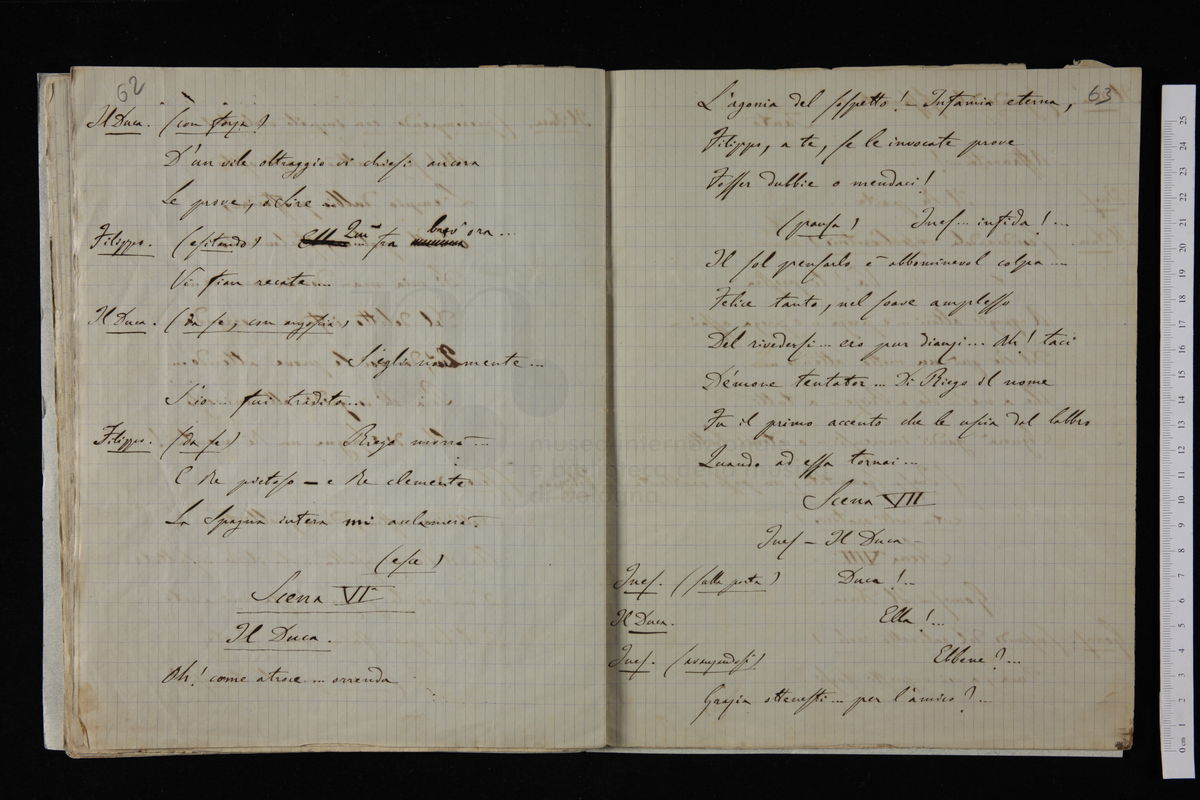 62
Il Duca. (con forza)
D'un vile oltraggio vi chiesi ancora
Le prove, o Sire ...
Filippo. (esitando) Qui ... fra brev' ora ...
Vi fian recate ...
Il Duca. (da se, con angoscia)
Sieglin mente ...
S'io ... fui tradito ...
Filippo. (da se) Riego morrà ...
E Re pietoso – e Re clemente
La Spagna intera mi acclamerà.
(esce)
Scena VIa
Il Duca.
Oh! come atroce ... orrenda
63
L'agonia del sospetto! – Infamia eterna,
Filippo, a te, se le invocate prove
Fosser dubbie o mendaci!
(pausa) Ines ... infida! ...
Il sol pensarlo è abbominevol colpa ...
Felice tanto, nel soave amplesso
Del rivedersi ... ero pur dianzi ... Ah! taci
Démone tentator ... Di Riego il nome
Fu il primo accento che le uscia dal labbro
Quando ad essa tornai ...
Scena VII
Ines – Il Duca
Ines. (sulla porta) Duca! ...
Il Duca. Ella! ...
Ines. (avanzandosi) Ebbene? ...
Grazia ottenesti ... per l'amico? ...
25
24
23
22
21
20
19
18
17
16
15
14
13
12
11
10
9
8
7
6
5
4
3
2
1
0 cm